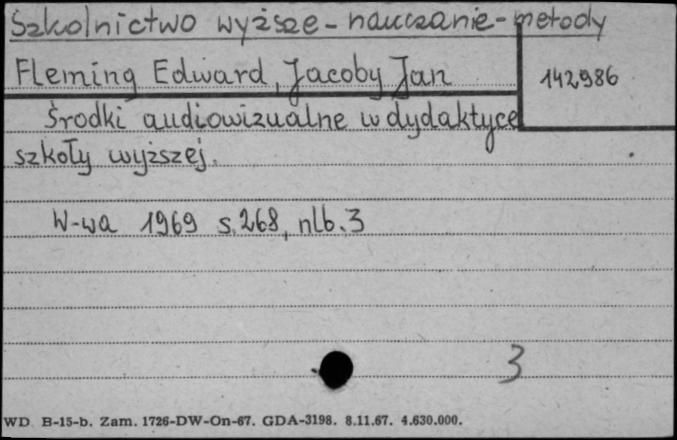 Szkolnictwo wyższe - nauczanie - metody
Fleming Edward, Jacoby Jan
142986
Środki audiowizualne w dydaktyce
szkoły wyższej.
W-wa 1969 s. 268, nlb. 3
3
WD B-15-b. Zam. 1726-DW-On-67. GDA-3198. 8.11.67. 4.630.000.